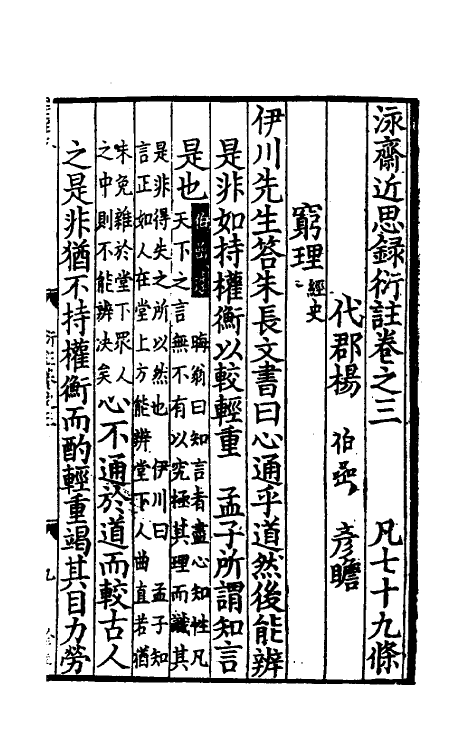 泳齋近思錄衍註卷之三　凡七十九條
代郡楊　伯嵒　彥瞻
窮理 經史
伊川先生答朱長文書曰心通乎道然後能辨
是非如持權衡以較輕重　孟子所謂知言
是也 伯嵒 晦翁曰知言者盡心知性凡
天下之言無不有以究極其理而識其
是非得失之所以然也　伊川曰　孟子知
言正如人在堂上方能辨堂下人曲直若猶
未免雜於堂下眾人
之中則不能辨決矣 心不通於道而較古人
之是非猶不持權衡而酌輕重竭其目力勞